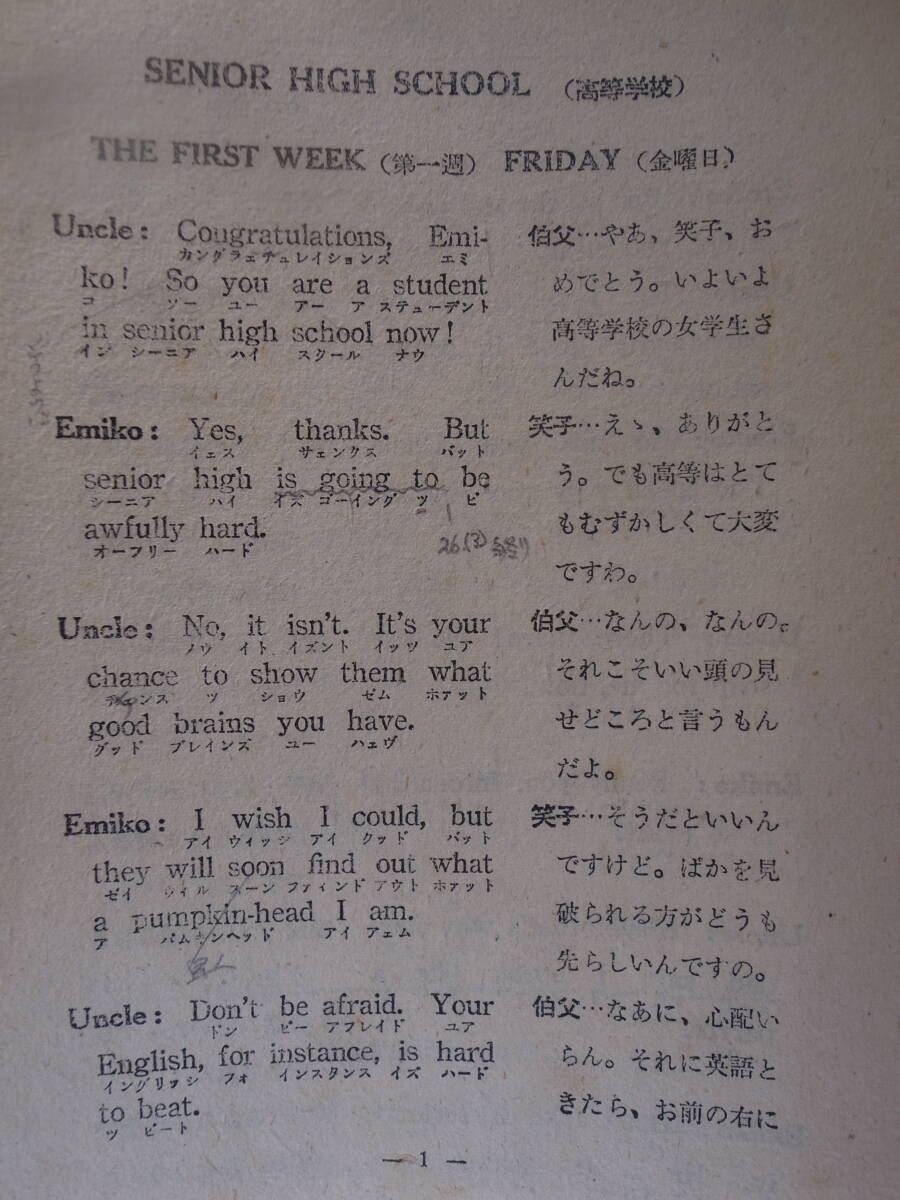 SENIOR HIGH SCHOOL (高等学校)
THE FIRST WEEK (第一週) FRIDAY (金曜日)
Uncle: Congratulations, Emi-
カングラェチュレイションズ エミ
ko! So you are a student
コ ソー ユー アー ア ステューデント
in senior high school now!
イン シーニア ハイ スクール ナウ
Emiko: Yes, thanks. But
イェス サェンクス バット
senior high is going to be
シーニア ハイ イズ ゴーイング ツ ビ
awfully hard.
オーフリー ハード
Uncle: No, it isn't. It's your
ノウ イト イズント イッツ ユア
chance to show them what
チャンス ツ ショウ ゼム ホァット
good brains you have.
グッド ブレインズ ユー ハェヴ
Emiko: I wish I could, but
アイ ウィッシ アイ クッド バット
they will soon find out what
ゼイ ウイル スーン ファィンド アウト ホァット
a pumpkin-head I am.
ア パムキンヘッド アイ アェム
Uncle: Don't be afraid. Your
ドン ビー アフレイド ユア
English, for instance, is hard
イングリッシ フォ インスタンス イズ ハード
to beat.
ツ ビート
伯父…やあ、笑子、お
めでとう。いよいよ
高等学校の女学生さ
んだね。
笑子…えゝ、ありがと
う。でも高等はとて
もむずかしくて大変
ですわ。
伯父…なんの、なんの。
それこそいい頭の見
せどころと言うもん
だよ。
笑子…そうだといいん
ですけど。ばかを見
破られる方がどうも
先らしいんですの。
伯父…なあに、心配い
らん。それに英語と
きたら、お前の右に
— 1 —